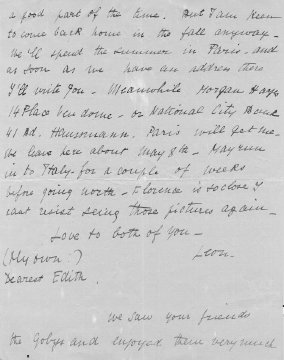 a good part of the time. But I am keen
to come back home in the fall anyway.
We'll spend the summer in Paris. and
as soon as we have an address there
I'll write you. Meanwhile Morgan
14 Place Vendome. or National City Bank
41 Bd. Haussmann. Paris will get me.
We leave here about May 8th. May run
in to Italy for a couple of weeks
before going north. Florence is so close I
cant resist seing those pictures again.
Love to both of you.
Leon.
(My own:)
Dearest Edith.
We saw your friends
the and enjoyed them very much